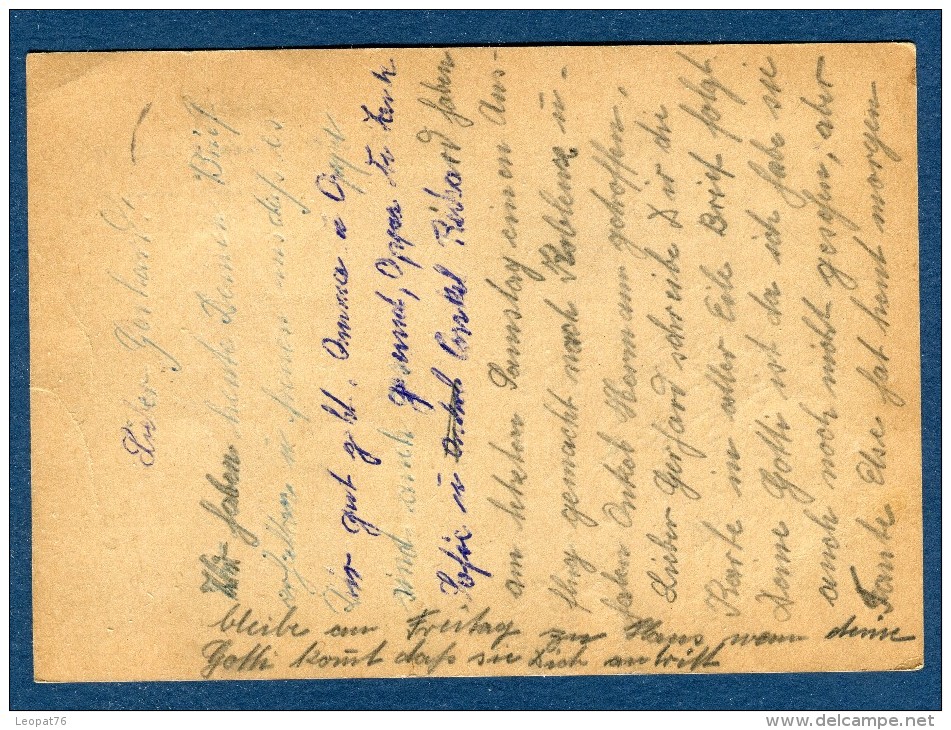 Lieber Gerhard!
Wir haben heute Deinen Brief
erhalten u. freuen uns daß es
Dir gut geht. Omma u Oppa
sind auch gesund, Oppa Du
Sofie u Onkel Richard haben
am letzten Samstag einen Aus-
flug gemacht nach Koblenz u-
haben Onkel Hermann getroffen.
Lieber Gerhard schreibe Dir die
Karte in aller Eile Brief folgt.
Deine Gotti ist da ich habe sie
auch noch nicht gesehen, aber
Tante Else hat heut morgen
bleibe am Freitag zu Haus wenn deine
Gotti komt daß sie Dich antrift
Leopat76
delcampe.net